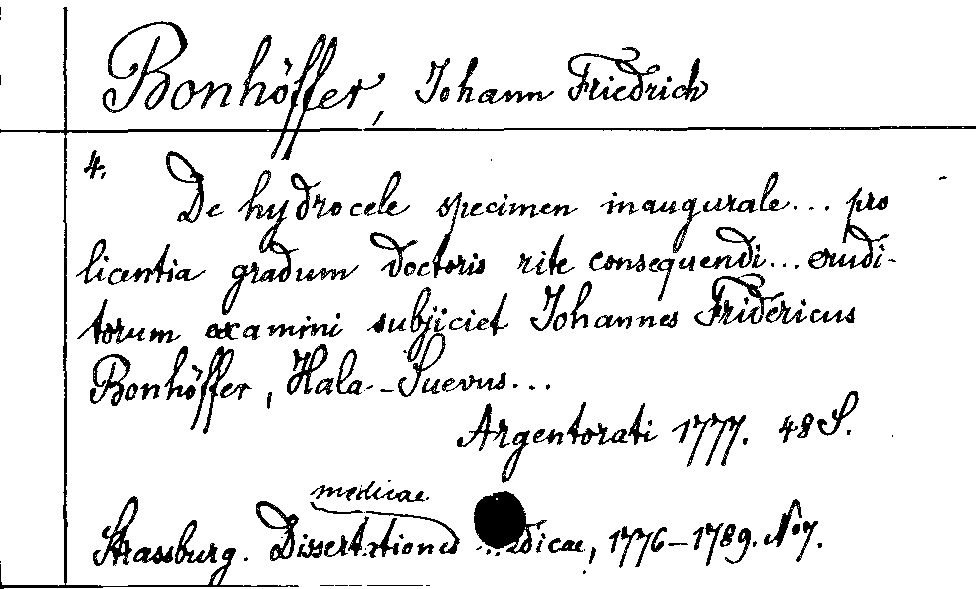 Bonhöffer, Johann Friedrich
4.
De hydrocele specimen inaugurale... pro
licentia gradum doctoris rite consequendi... erudi-
torum examini subjiciet Johannes Fridericus
Bonhöffer, Hala-Suevus...
Argentorati 1777. 48 S.
medicae
Strassburg. Dissertationes medicae, 1776-1789. No 7.